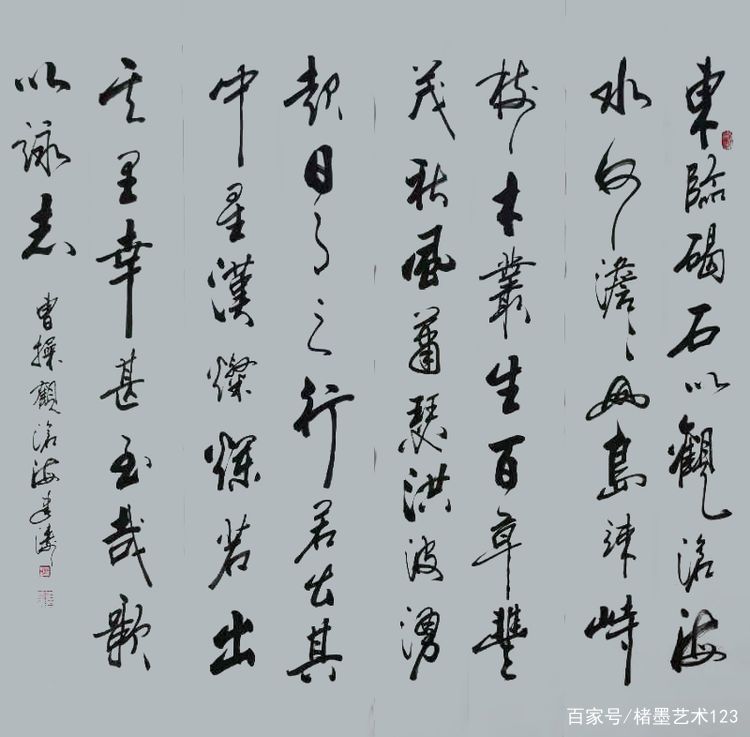 東臨碣石以觀滄海
水何澹澹山島竦峙
樹木叢生百草豐
茂秋風蕭瑟洪波湧
起日月之行若出其
中星漢燦爛若出
其里幸甚至哉歌
以詠志
曹操觀滄海
百家号/楮墨艺术123